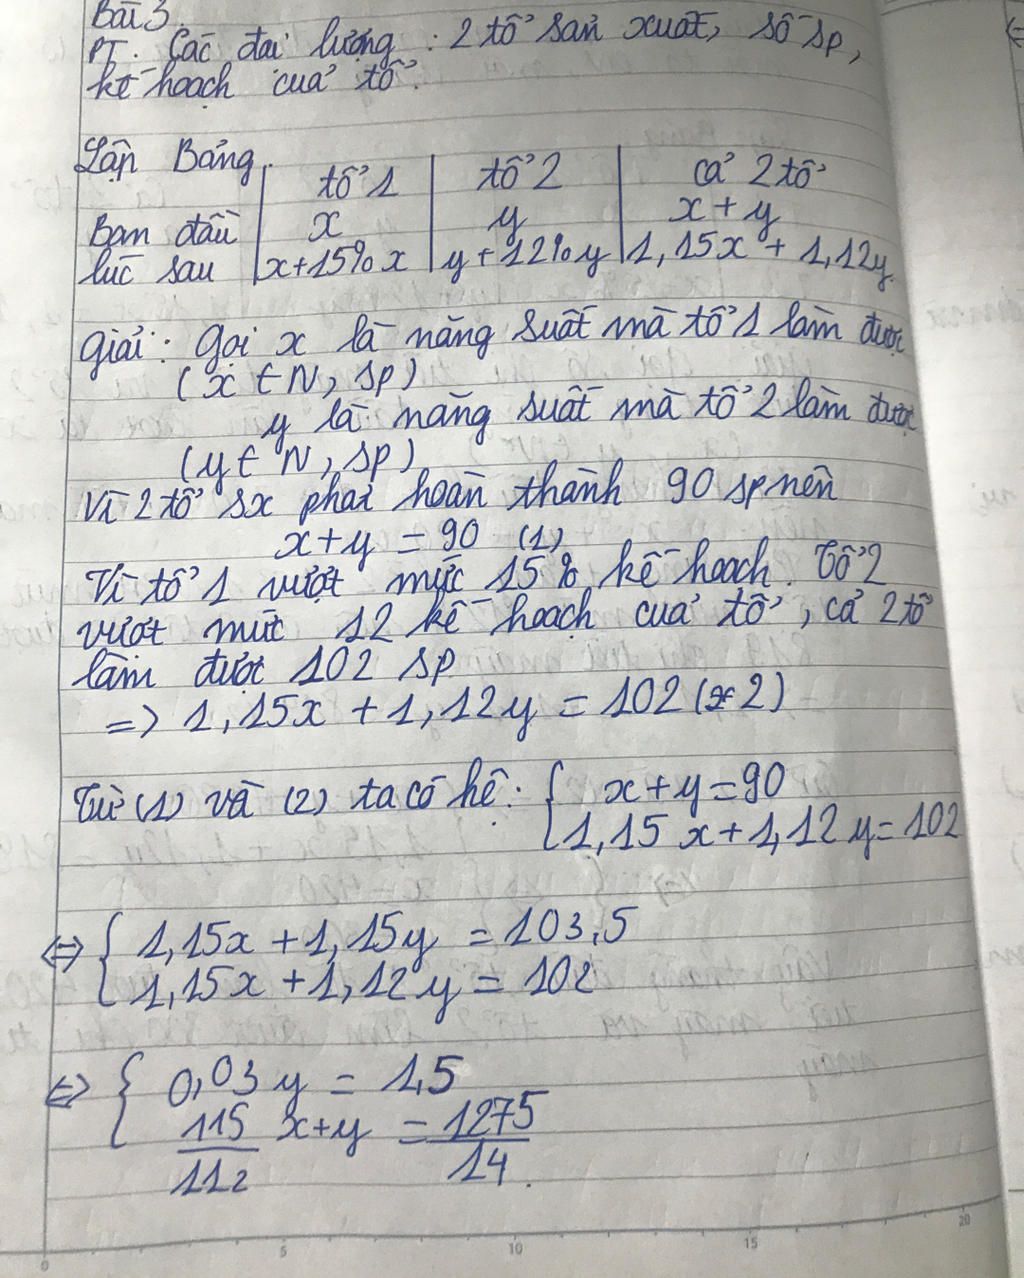 Bài 3.
PT: Các đại lượng : 2 tổ sản xuất, số sp,
kế hoạch của tổ.
Lập Bảng.
tổ 1 tổ 2 cả 2 tổ
Ban đầu x y x + y
lúc sau x+15% x y + 12% y 1,15x + 1,12y
giải: Gọi x là năng suất mà tổ 1 làm được
(x ∈ N, sp)
y là năng suất mà tổ 2 làm được
(y ∈ N, sp)
Vì 2 tổ sx phải hoàn thành 90 sp nên
x+y = 90 (1)
Vì tổ 1 vượt mức 15% kế hoạch. Tổ 2
vượt mức 12 kế hoạch của tổ, cả 2 tổ
làm được 102 sp
=> 1,15x + 1,12y = 102 (2)
Từ (1) và (2) ta có hệ: { x+y=90
1,15 x+1,12 y=102
⇔ { 1,15x + 1,15y = 103,5
1,15x + 1,12y = 102
⇔ { 0,03 y = 1,5
115/112 x+y = 1275/14
0 5 10 15 20